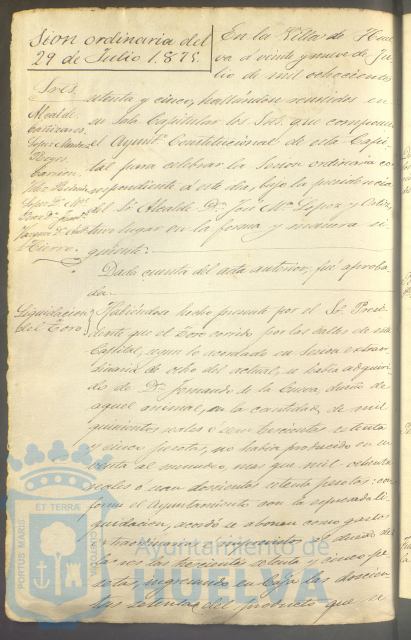 Sion ordinaria del
29 de Julio 1.875.
Sres.
Alcalde
Cañizares
Lopez
Reyes
Carrion
Lopez Dn. Ml.
Hierro
En la Villa de Huel
va á veinte y nueve de Ju
lio de mil ochocientos
setenta y cinco, hallándose reunidos en
su Sala Capitular los Sres. que componen
el Ayunto. Constitucional de esta Capi
tal para celebrar la sesion ordinaria co
rrespondiente á este dia, bajo la presidencia
del Sr. Alcalde Dn. José Ma. Lopez y
tuvo lugar en la forma y manera si
guiente:
Dada cuenta del acta anterior, fué aproba
da.
Liquidacion
del Toro.
Habiéndose hecho presente por el Sr. Presi
dente que el Toro corrido por las calles de esta
Capital, segun lo acordado en sesion extraor
dinaria de ocho del actual, se habia adquiri
do de Dn. Fernando de la Cueva, dueño de
aquel animal, en la cantidad de mil
quinientos reales ó sean trescientas setenta
y cinco pesetas, no habia producido en su
venta al menudeo, mas que mil ochenta
reales ó sean doscientas setenta pesetas: con
forme el Ayuntamiento con la expresada li
quidacion, acordó se abonen como gasto
extraordinario é imprevistos
las trescientas setenta y cinco pe
setas, ingresando en Caja las doscien
tas setenta del producto que se
PORTUS MARIS
ET TERRA
CUSTODIA
Ayuntamiento de
HUELVA